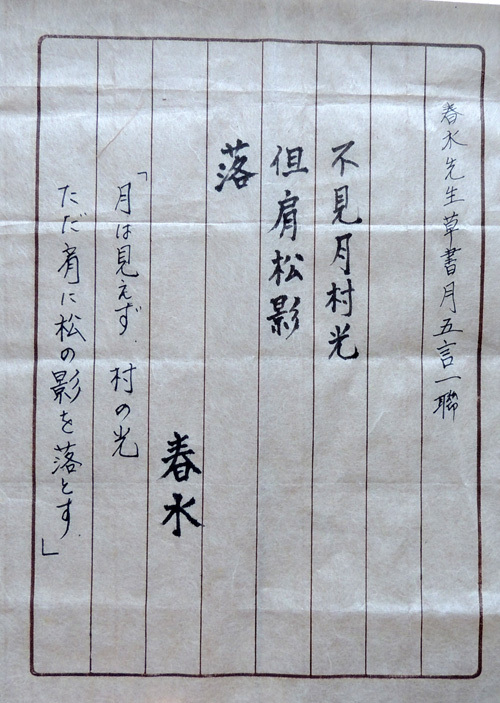 春水先生草書月五言一聯
不見月村光
但肩松影
落
春水
「月は見えず 村の光
ただ肩に松の影を落とす」